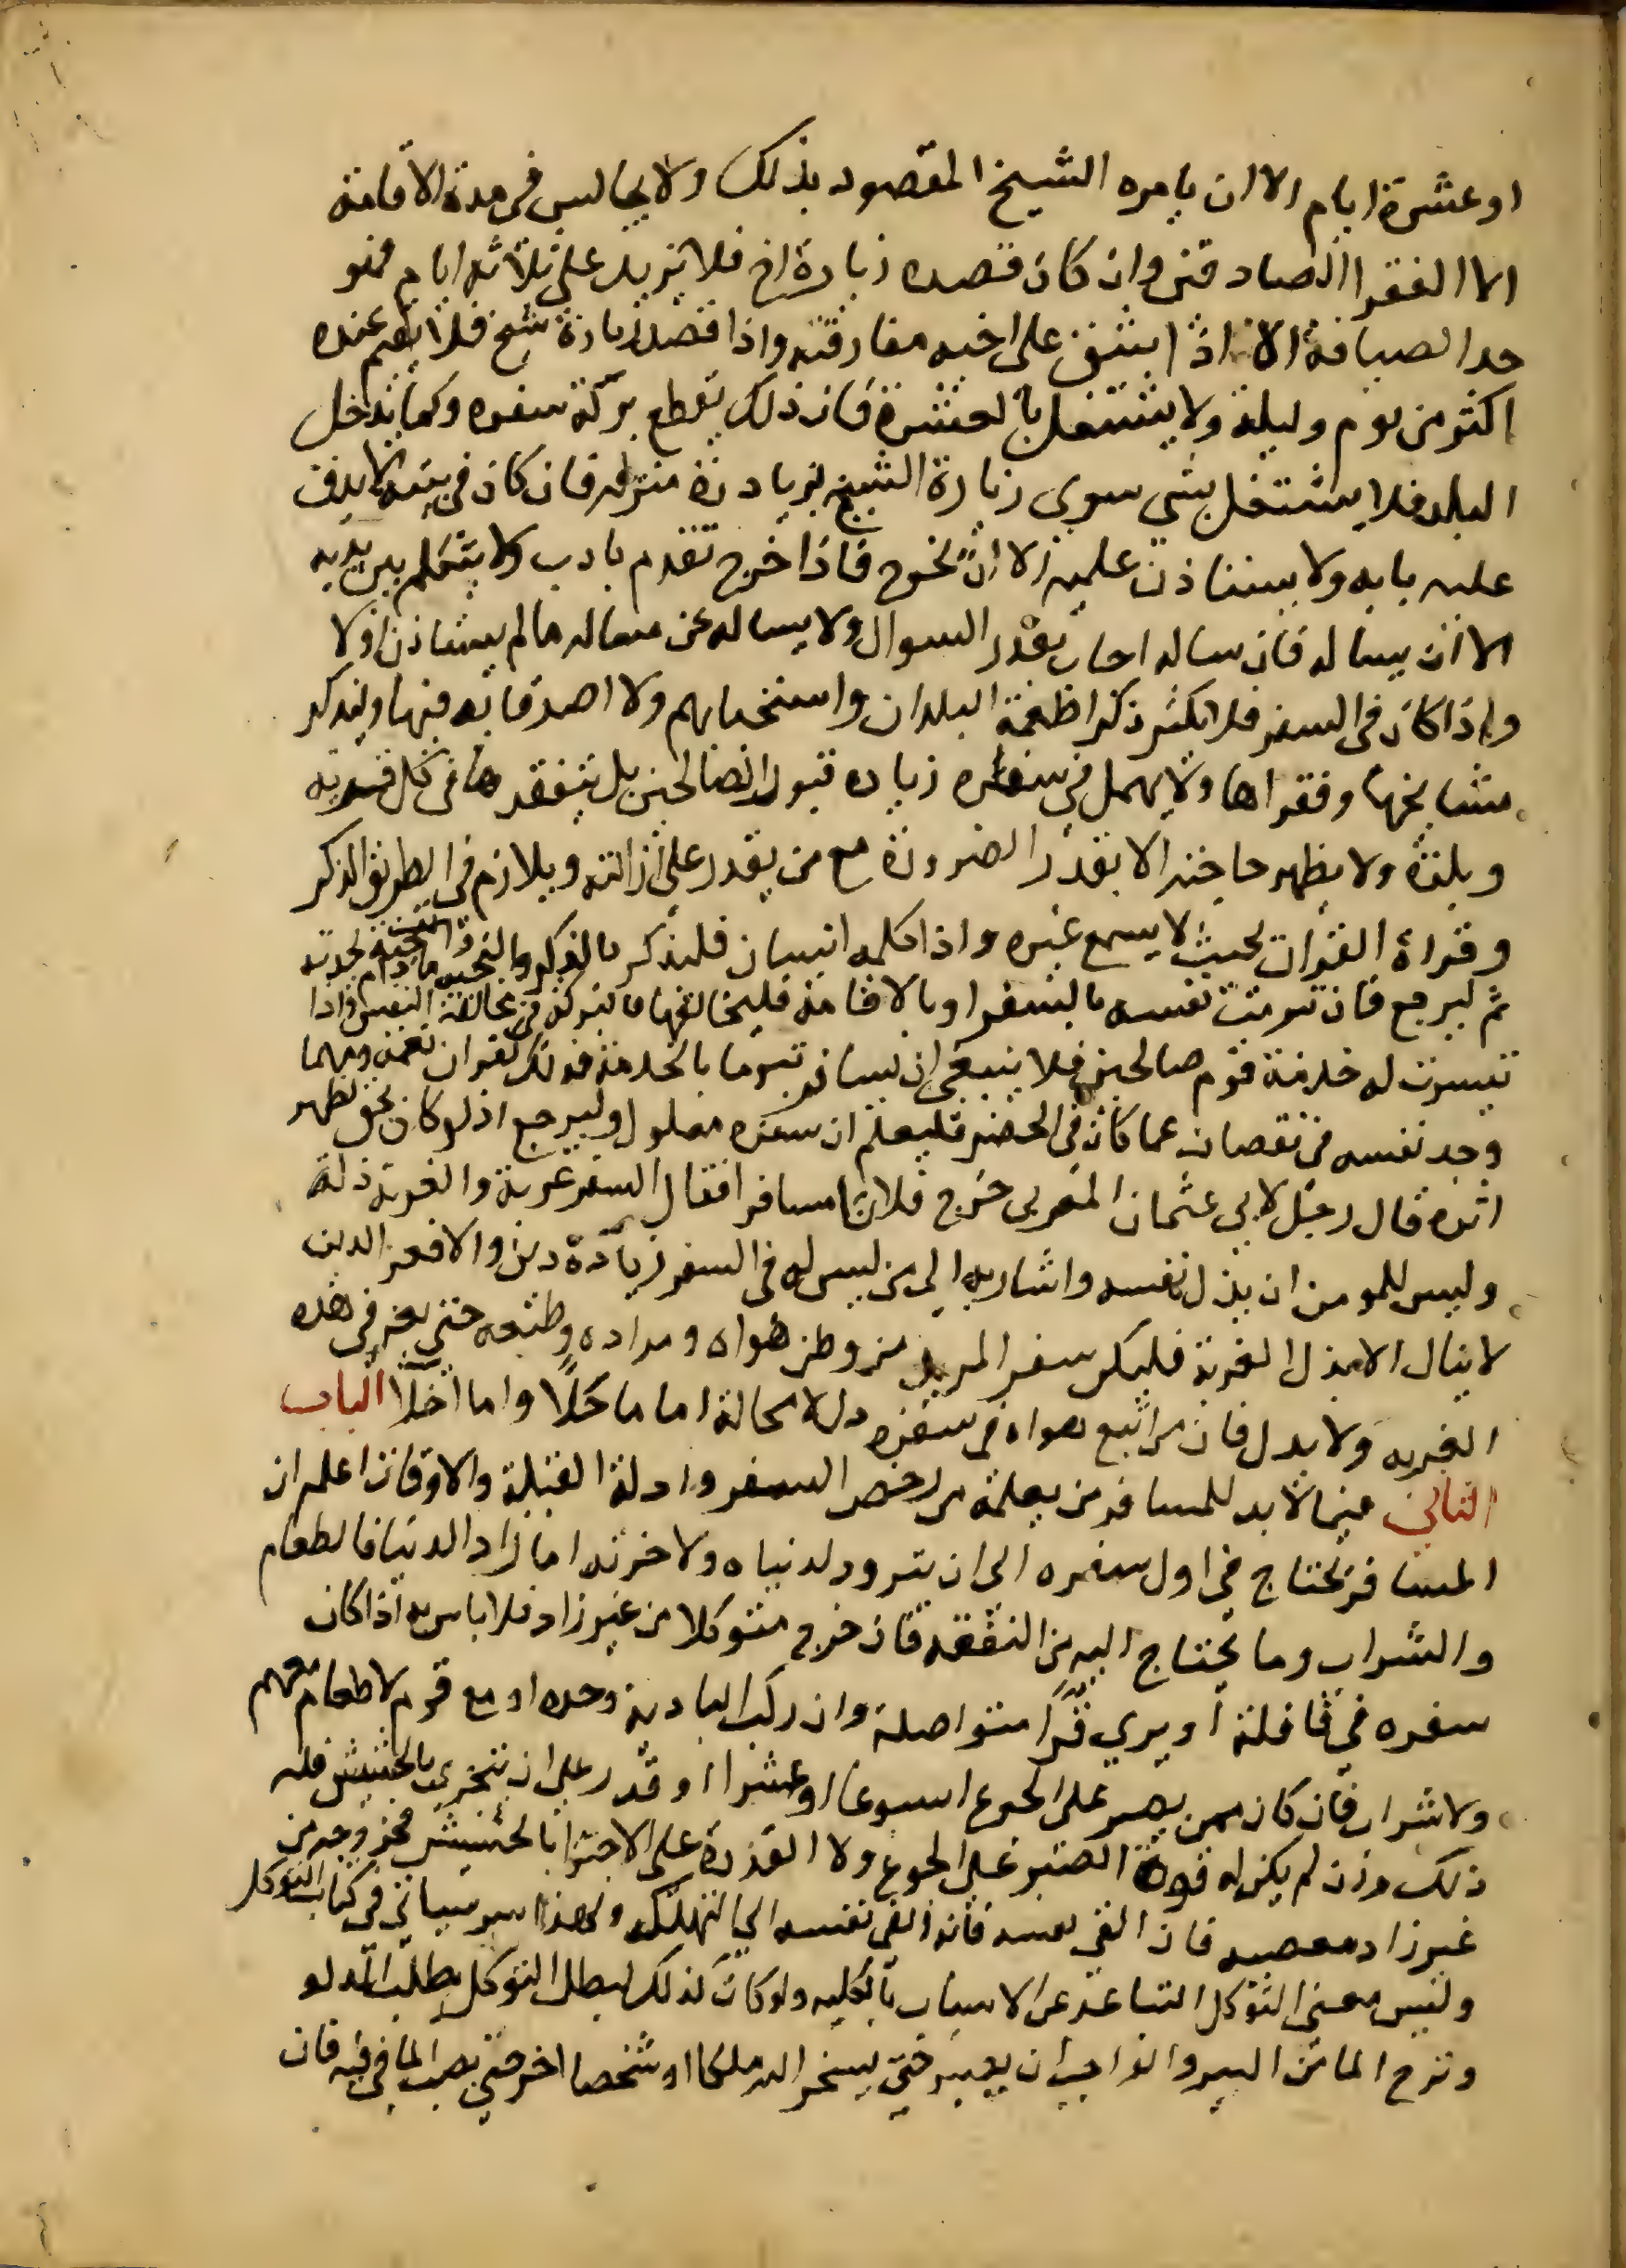 او عشرة ايام الا ان يامره الشيخ المقصود بذلك ولا يجالس فى مدة الاقامة
الا الفقرا الصادقين وان كان قصده زيارة اخ فلا يزيد على ثلاثة ايام فهو
حد الضيافة الا اذا شق على اخيه مفارقته واذا قصد زيارة شيخ فلا يقيم عنده
اكثر من يوم وليلة ولا يشتغل بالعشرة فان ذلك يقطع بركة سفره وكما يدخل
البلد فلا يشتغل بشي سوى زيارة الشيخ بزيارة منزله فان كان فى بيته لا يدق
عليه بابه ولا يستاذن عليه الا ان يخرج فاذا خرج تقدم بادب ولا يتكلم بين يديه
الا ان يساله فان ساله اجاب بقدر السوال ولا يساله عن مساله ما لم يستاذن اولا
واذا كان فى السفر فلا يكثر ذكر اطعمة البلدان واسخيايهم ولا اصدقايه فيها وليذكر
مشايخها وفقراها ولا يهمل فى سفره زياره قبور الصالحين بل يتفقدها فى كل قرية
وبلدة ولا يظهر حاجته الا بقدر الضرورة مع من يقدر على ازالتها ويلازم فى الطريق الذكر
وقراة القران بحيث لا يسمع غيره واذا كلمه انسان فليترك الذكر وليجبه ما دام يحدثه
ثم ليرجع فان تبرمت نفسه بالسفر او بالاقامة فليخالفها فالبركة فى مخالفة النفس واذا
تيسرت له خدمة قوم صالحين فلا ينبغى ان يسافر تبرما بالخدمة فذلك كفران نعمة ومهما
وجد نفسه فى نقصان عما كان فى الحضر فليعلم ان سفره معلول وليرجع اذ لو كان بحق لظهر
اثره قال رجل لابى عثمان المغربى خرج فلان مسافرا فقال السفر غربة والغربة ذلة
وليس للمومن ان يذل نفسه واشار به الى من ليس له فى السفر زيادة دين والا فعز الدين
لا ينال الا بذل الغربة فليكن سفر المريد من وطن هواه ومراده وطبعه حتى يعز فى هذه
الغربه ولا يذل فان من اتبع هواه فى سفره ذل لا محالة اما عاجلا واما اجلا الباب
الثانى فيما لا بد للمسافر من تعلمه من رخص السفر وادلة القبلة والاوقات اعلم ان
المسافر يحتاج فى اول سفره الى ان يتزود لدنياه ولاخرته اما زاد الدنيا فالطعام
والشراب وما يحتاج اليه من النفقه فان خرج متوكلا من غير زاد فلا باس به اذا كان
سفره فى قافلة او بين قرى متواصلة وان ركب البادية وحده او مع قوم لا طعام معهم
ولا شراب فان كان ممن يصبر على الجوع اسبوعا او عشرا او قدر على ان يجتزى بالحشيش فله
ذلك وان لم يكن له قوة الصبر على الجوع ولا القدرة على الاجتزا بالحشيش فخروجه من
غير زاد معصيه فان القى نفسه فانه القى نفسه الى التهلكة ولهذا سر سياتى فى كتاب التوكل
وليس معنى التوكل التباعد عن الاسباب بالكليه ولو كان كذلك لبطل التوكل بطلب الدلو
ونزح الما من البير ولوجب ان يصبر حتى يسخر الله ملكا او شخصا اخر حتى يصب الما فى فيه فان